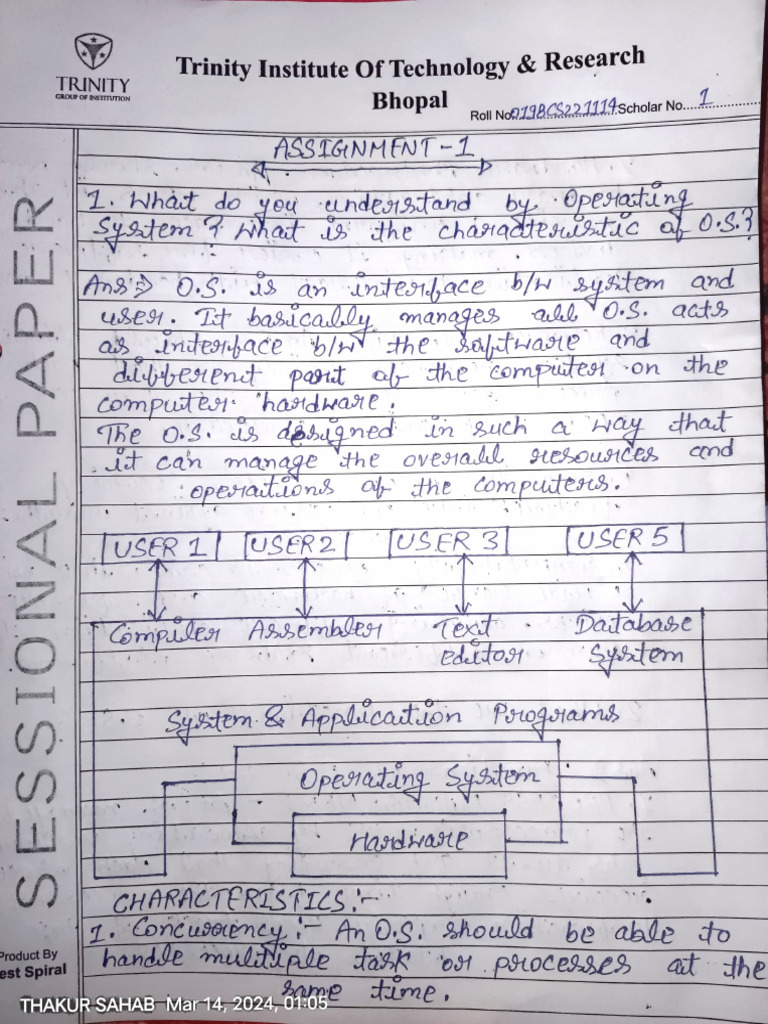 TRINITY
GROUP OF INSTITUTION
Trinity Institute Of Technology & Research
Bhopal
Roll No. 0198CS221119 Scholar No. 1
SESSIONAL PAPER
ASSIGNMENT-1
1. What do you understand by Operating
System? What is the charadteristic of O.S.?
Ans⇒ O.S. is an interface b/w system and
user. It basically manages all O.S. acts
as interface b/w the software and
different part of the computer on the
computer hardware.
The O.S. is designed in such a way that
it can manage the overall resources and
operations of the computers.
USER 1 USER 2 USER 3 USER 5
Compiler Assembler Text Database
editor System
System & Application Programs
Operating System
Hardware
CHARACTERISTICS:-
1. Concurrency:- An O.S. should be able to
handle multiple task or processes at the
same time.
Product By
est Spiral
THAKUR SAHAB Mar 14, 2024, 01:05